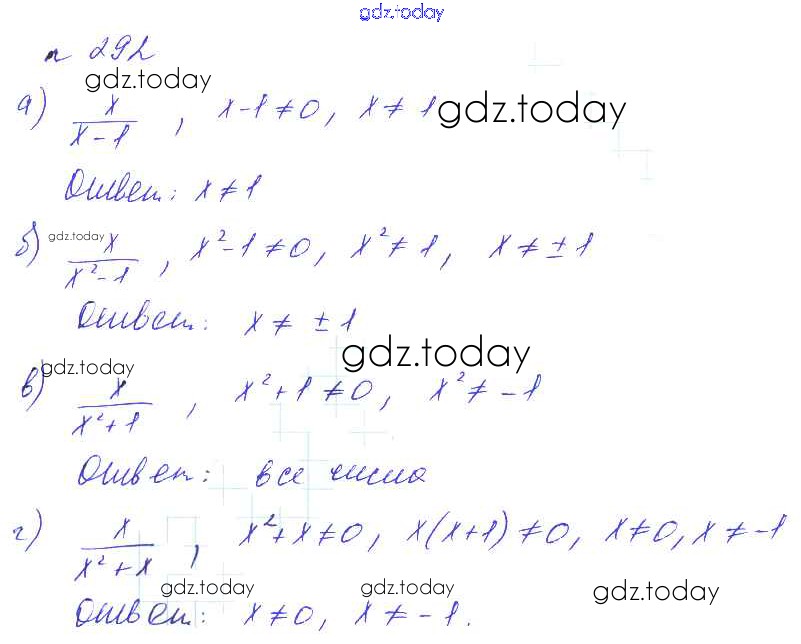 gdz.today
n 292
gdz.today
а) x/(x-1), x-1≠0, x≠1 gdz.today
Ответ: x≠1
б) gdz.today x/(x²-1), x²-1≠0, x²≠1, x≠±1
Ответ: x≠ ±1
gdz.today
в) gdz.today x/(x²+1), x²+1≠0, x²≠-1
Ответ: все числа
г) x/(x²+x), x²+x≠0, x(x+1)≠0, x≠0, x≠-1
gdz.today gdz.today gdz.today
Ответ: x≠0, x≠-1.